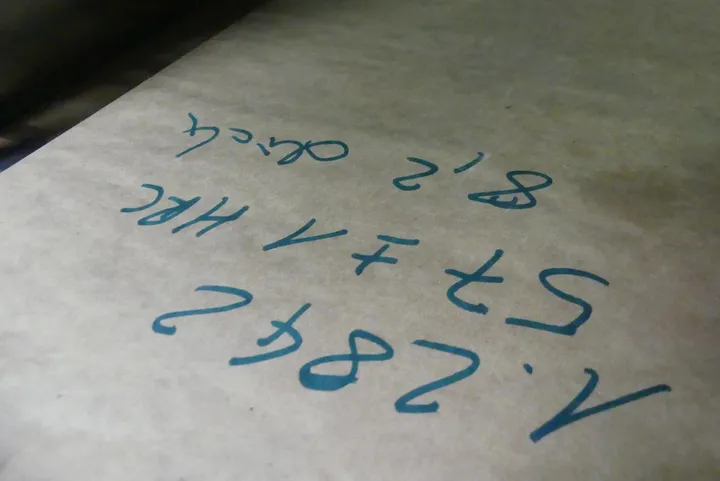 1.2842
57 ± 1 HRC
8,2 dick